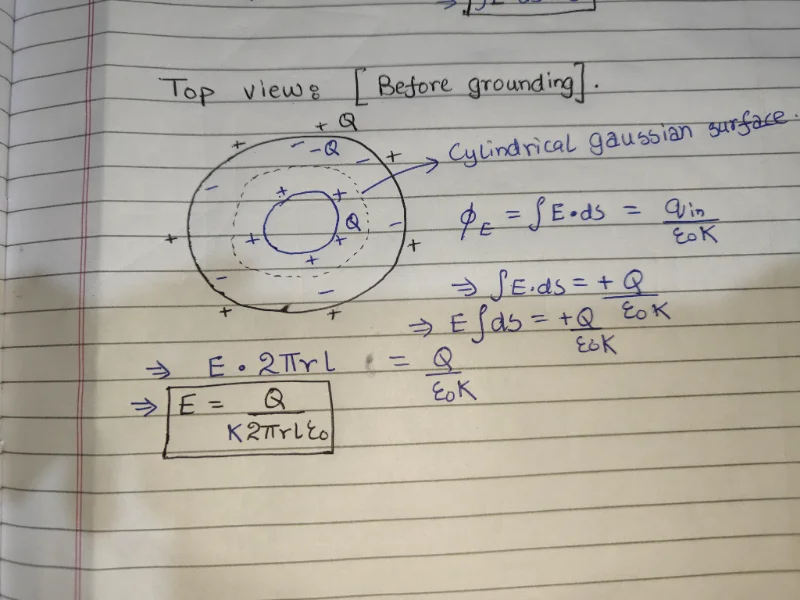 Top view: [Before grounding].
+ Q
- -Q
Cylindrical gaussian surface.
Q
ϕE = ∫E•ds = qin/ε0K
⇒ ∫E.ds = + Q/ε0K
⇒ E∫ds = +Q/ε0K
⇒ E • 2πrl = Q/ε0K
⇒ E = Q/K2πrlε0